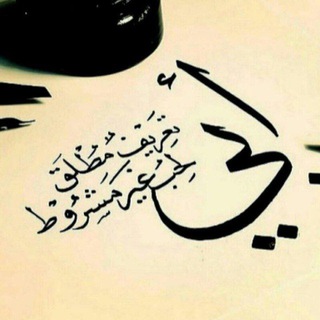 أمي
تعريف مطلق
لحب غير مشروط